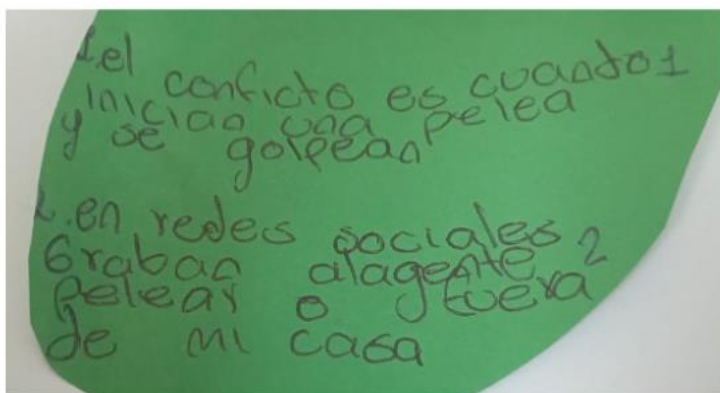 1.el conficto es cuando 1
inician una pelea
y se golpean
2.en redes sociales 2
Graban alagente
pelear o fuera
de mi casa